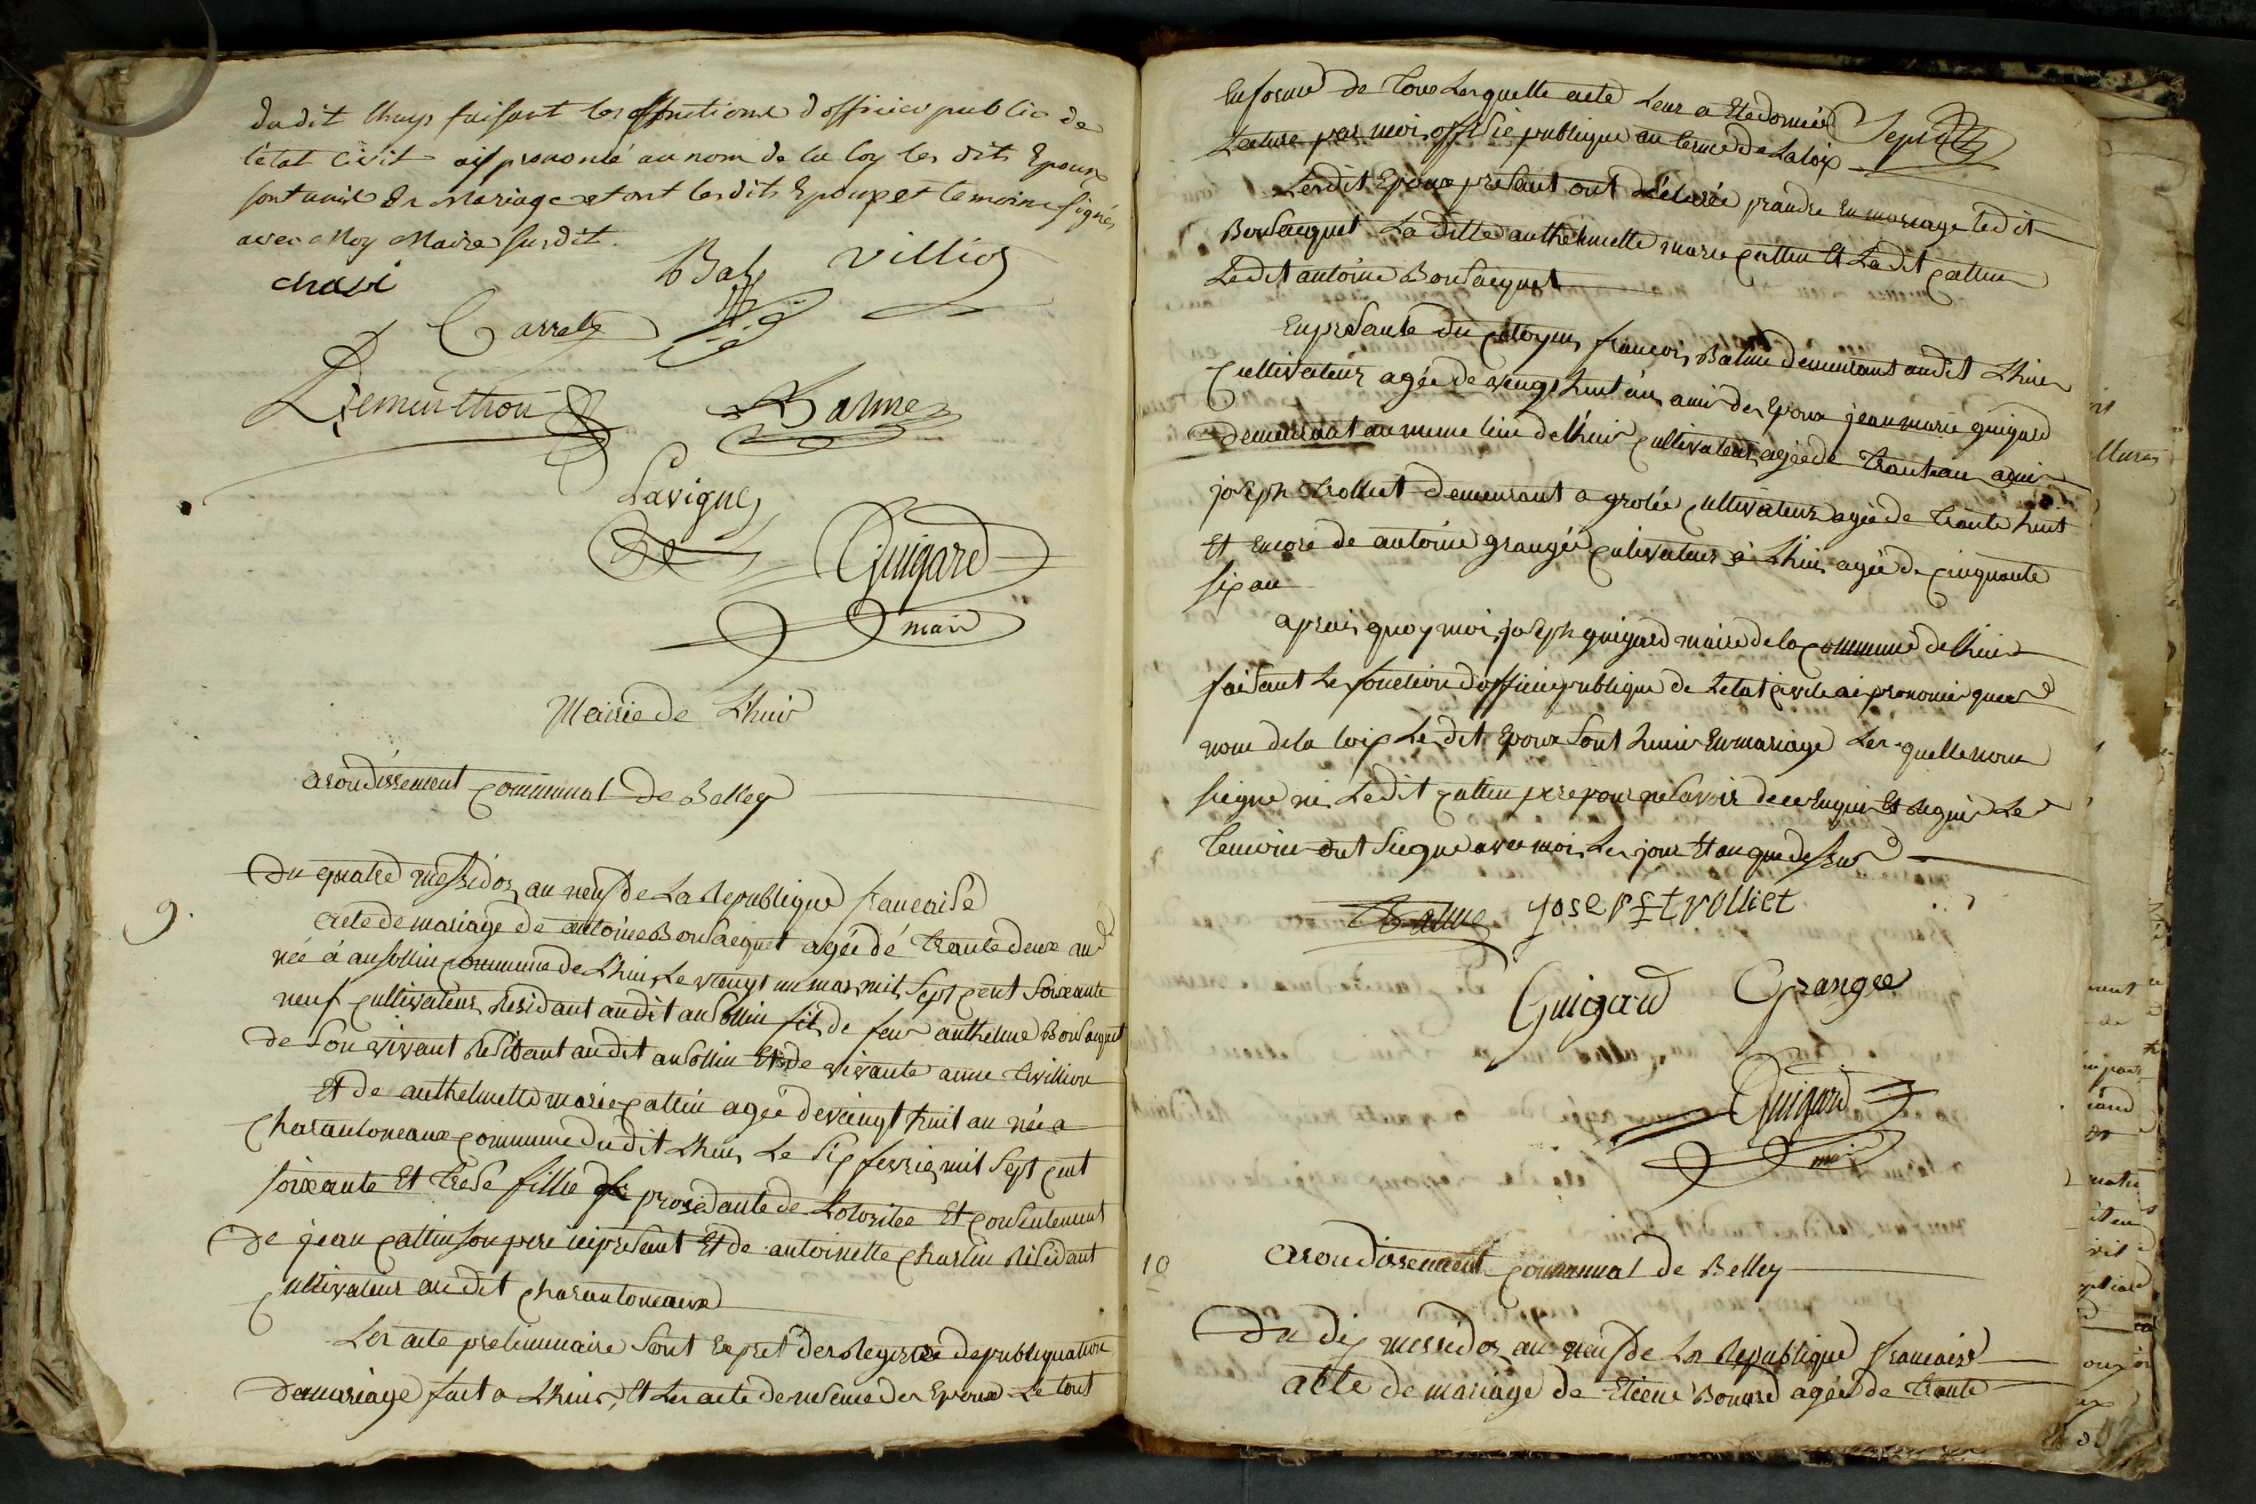 dudit lhuys faisant les ffonctions d'officier public de
l'état Civil ai prononcé au nom de la loy les dits Epoux
sont unis En Mariage et ont les dits Epoux et temoins signés
avec Moy Maire susdit.
chasi
Baly villios
Carrel
Dementhon
Balme
Lavigne
Guigard
mair
Mairie de Lhuis
arondissement Communal de Belley
9.
Du quatre messidor an neuf de La Republique francaise
acte de mariage de antoine Bonsacquet agée de trante deux an
née á ansollin Commune de Lhuis Le vengt un mars mil sept cent soixante
neuf Cultivateur Residant audit ansollin fils de feu anthelme Bonsaquet
de son vivant Residant audit ansollin Et de vivante anne trillion
Et de anthelmette marie Cattin agée de veingt huit an née a
Charantoneaux Commune dudit Lhuis Le six fevrie mil sept cent
soixante Et trese fillie prosedante de Lotoritee Et Consentement
De jean Cattin son pere icipresant Et de antoinette Charlin Residant
Cultivateur audit Charantoneaux
Les acte preliminaire sont Expret des Registre de publiquation
de mariage fait a Lhuis, Et Les acte de nesence des Epoux Le tout
En forme de Tous Lesquelle acte Leur a Ete donnée
Lecture par moi offisie publique au terme de La loix
Lesdit Epoux presant ont declarée prandre En mariage ledit
Bonsacquet La ditte anthelmette marie Cattin Et Ladit Cattin
Ledit antoine Bonsacquet
En presante du Citoyens francois Balme demeurant audit Lhuis
Cultivateur agée de vengt huit an ami des Epoux jean marie guigard
Demeurant au meme lieu de lhuis Cultivateur agée de trante an ami
joseph trolliet demeurant a grolée Cultivateur agée de trante huit
Et Encore de antoine grangée Cultivateur à Lhuis agée de Cinquante
six an
aprais quoy moi joseph guigard maire de la Commune de lhuis
faisant Les fonction d'officie publique de L'etat Civile ai prononcée que au
nom de la loix Ledit Epoux sont hunis En mariage Les quelle nont
siegne ni Ledit Cattin pere pour ne savoir de ce Enquis Et Requis Les
temoins ont siegne avec moi Les jour Et an que dessus
Balme josepf trolliet
Guigard Grangée
Guigard
mair
10
arondissement Communal de Belley
Du dix messidor an neuf de La Republique francaise
acte de mariage de Etiene Bonard agée de trante